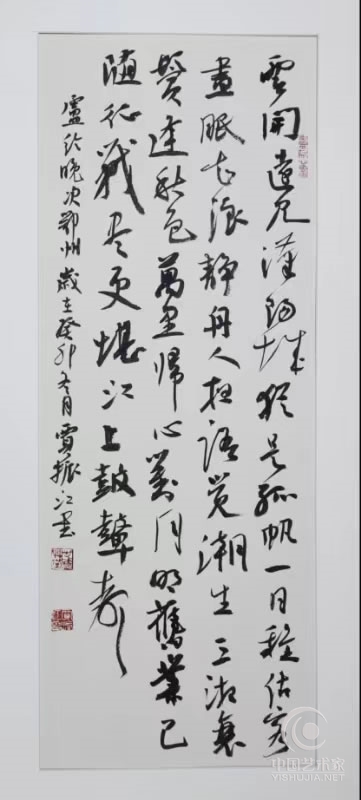 雲開遠見漢陽城猶是孤帆一日程估客
晝眠知浪靜舟人夜語覺潮生三湘衰
鬢逢秋色萬里歸心對月明舊業已
隨征戰尽更堪江上鼓鼙聲
盧綸晚次鄂州歲在癸卯冬月賈振江書
中国艺术家
YISHUJIA.NET